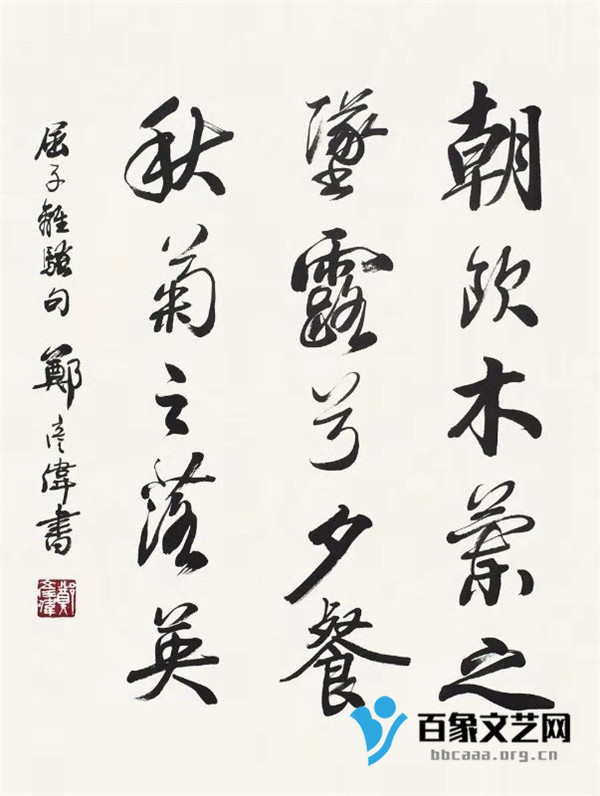 朝飲木蘭之
墜露兮夕餐
秋菊之落英
屈子離騷句 鄭彦偉書
鄭彦偉
百象文艺网
bbcaaa.org.cn